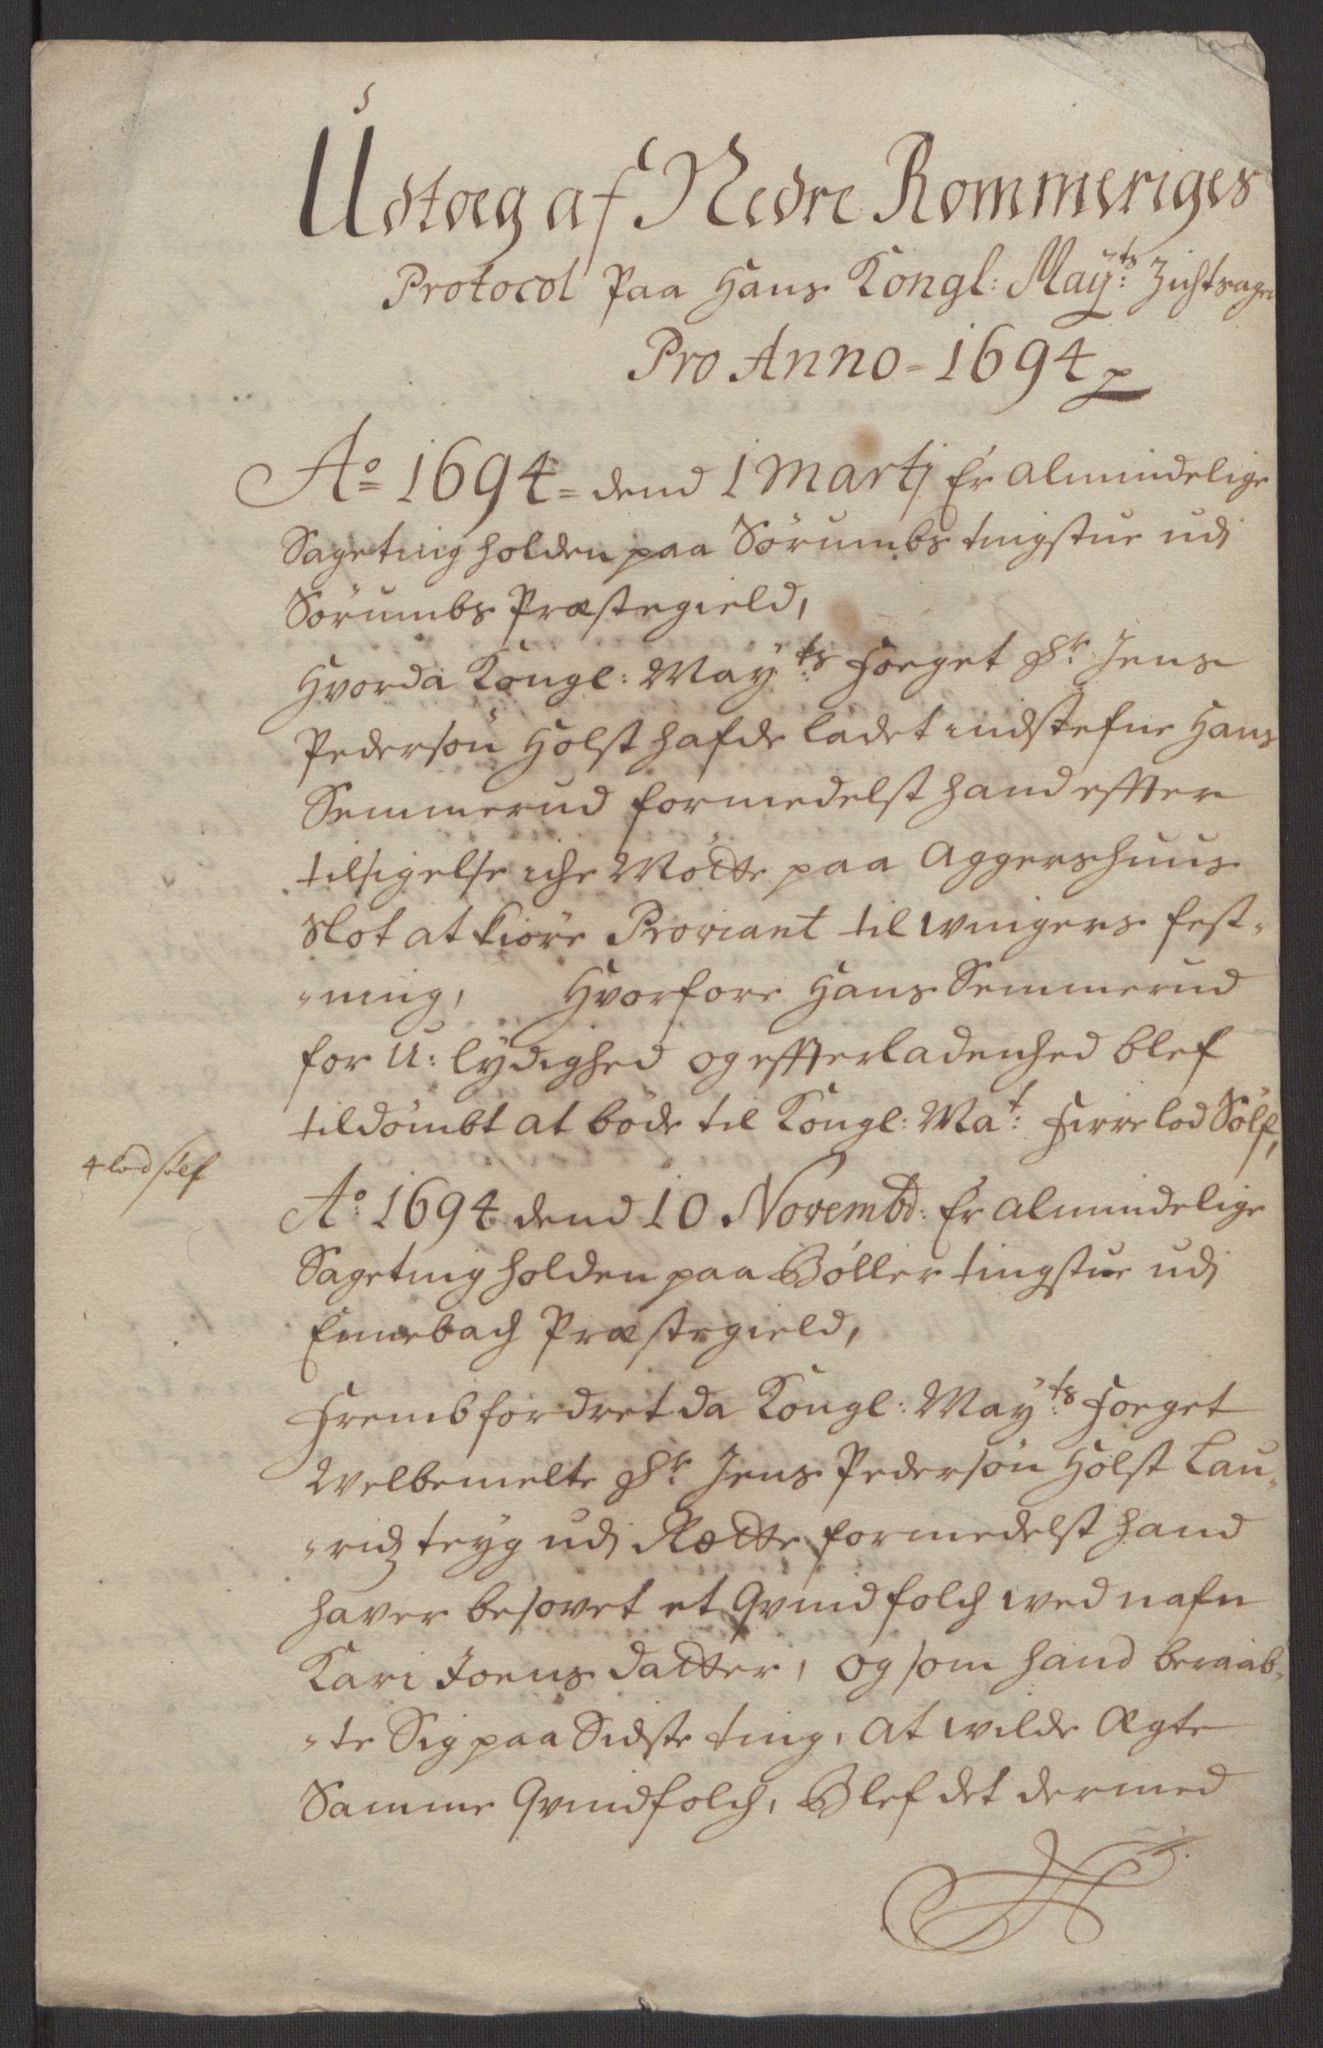 Udtoeg af Nedre Rommeriges
Protocol Paa Hans Kongl: May:ts Zichtsager
Pro Anno = 1694 p
Ao 1694 = dend 1 Martj Er almindelige
Sageting holden paa Sørumbs tingstue udj
Sørumbs Præstegield,
Hvor da Kongl: May:ts Foeget Sr. Jens
Pedersøn Holst hafde ladet indstefne Hans
Semmerud formedelst hand effter
tilsigelse iche Møtte paa Aggershuus
Slot at kiøre Proviant til Wingers fest-
-ning, Hvorfore Hans Semmerud
for U: lydighed og effterladenhed blef
tildømbt at bøde til Kongl: Ma:t Firre lod Sølf,
4 lod sølf
Ao 1694 dend 10 Novembd: Er almindelige
Sageting holden paa Bøller tingstue udj
Ennebach Præstegield,
Frembfordret da Kongl: May:ts Foeget
Welbemelte Sr. Jens Pedersøn Holst Lau-
-ridz teyg udj Rætte formedelst hand
haver besovet et Qvindfolch wed nafn
Kari Joens datter, og som hand beraab-
-te Sig paa Sidste ting, at wilde Ægte
Samme Qvindfolch, Blef det dermed